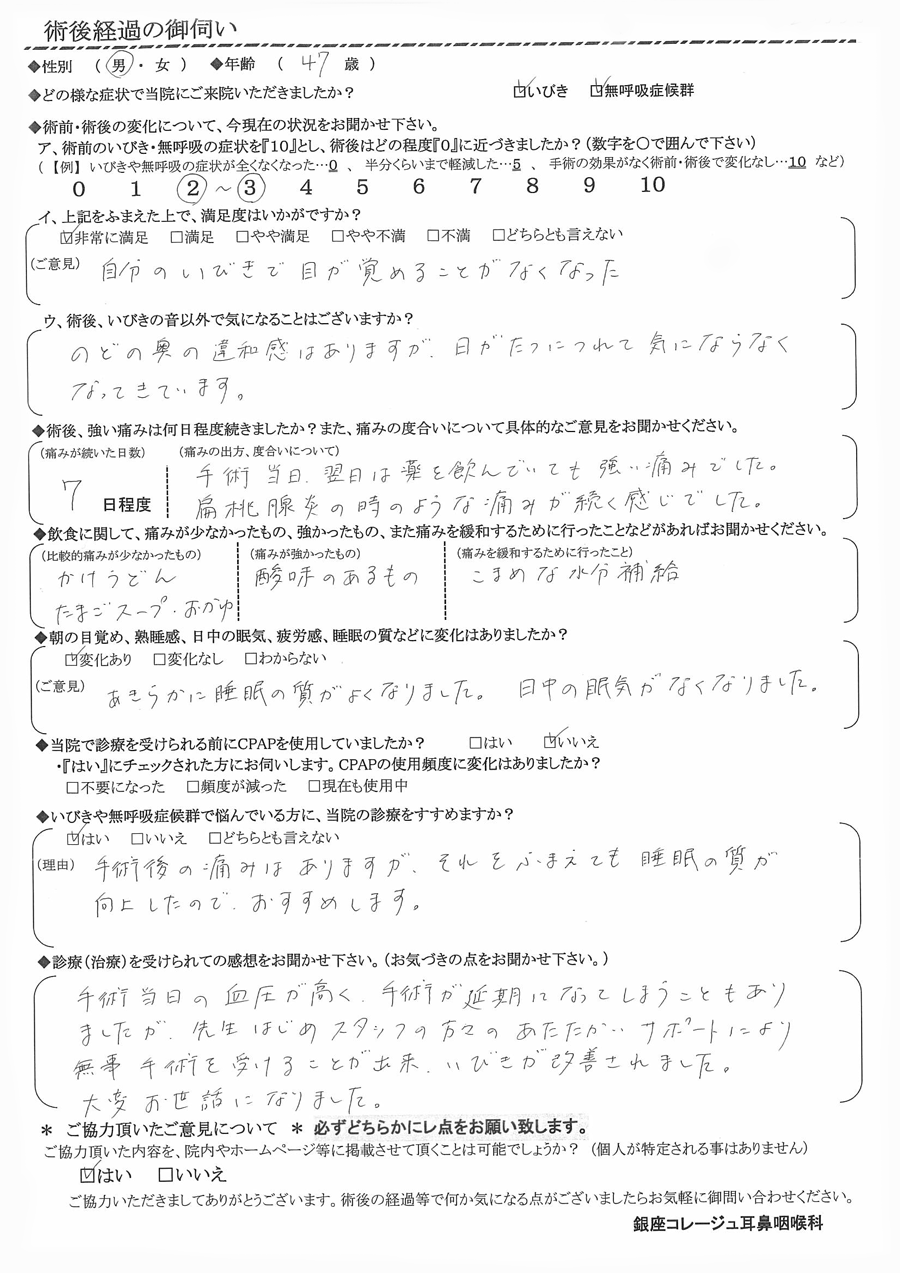 術後経過の御伺い
◆性別 ( 男 ・ 女 ) ◆年齢 ( 47 歳 )
◆どの様な症状で当院にご来院いただきましたか? ☑いびき ☑無呼吸症候群
◆術前・術後の変化について、今現在の状況をお聞かせ下さい。
ア、術前のいびき・無呼吸の症状を『10』とし、術後はどの程度『0』に近づきましたか?(数字を○で囲んで下さい)
(【例】 いびきや無呼吸の症状が全くなくなった…0 、 半分くらいまで軽減した…5 、 手術の効果がなく術前・術後で変化なし…10 など)
0 1 ② ~ ③ 4 5 6 7 8 9 10
イ、上記をふまえた上で、満足度はいかがですか?
☑非常に満足 □満足 □やや満足 □やや不満 □不満 □どちらとも言えない
(ご意見) 自分のいびきで目が覚めることがなくなった
ウ、術後、いびきの音以外で気になることはございますか?
のどの奥の違和感はありますが、日がたつにつれて気にならなく
なってきています。
◆術後、強い痛みは何日程度続きましたか?また、痛みの度合いについて具体的なご意見をお聞かせください。
(痛みが続いた日数) (痛みの出方、度合いについて)
手術当日、翌日は薬を飲んでいても強い痛みでした。
7 日程度 扁桃腺炎の時のような痛みが続く感じでした。
◆飲食に関して、痛みが少なかったもの、強かったもの、また痛みを緩和するために行ったことなどがあればお聞かせください。
(比較的痛みが少なかったもの) (痛みが強かったもの) (痛みを緩和するために行ったこと)
かけうどん 酸味のあるもの こまめな水分補給
たまごスープ・おかゆ
◆朝の目覚め、熟睡感、日中の眠気、疲労感、睡眠の質などに変化はありましたか?
☑変化あり □変化なし □わからない
(ご意見) あきらかに睡眠の質がよくなりました。 日中の眠気がなくなりました。
◆当院で診療を受けられる前にCPAPを使用していましたか? □はい ☑いいえ
・『はい』にチェックされた方にお伺いします。CPAPの使用頻度に変化はありましたか?
□不要になった □頻度が減った □現在も使用中
◆いびきや無呼吸症候群で悩んでいる方に、当院の診療をすすめますか?
☑はい □いいえ □どちらとも言えない
(理由) 手術後の痛みはありますが、それをふまえても睡眠の質が
向上したので、おすすめします。
◆診療(治療)を受けられての感想をお聞かせ下さい。(お気づきの点をお聞かせ下さい。)
手術当日の血圧が高く、手術が延期になってしまうこともあり
ましたが、先生はじめスタッフの方々のあたたかいサポートにより
無事手術を受けることが出来、いびきが改善されました。
大変お世話になりました。
* ご協力頂いたご意見について * 必ずどちらかにレ点をお願い致します。
ご協力頂いた内容を、院内やホームページ等に掲載させて頂くことは可能でしょうか? (個人が特定される事はありません)
☑はい □いいえ
ご協力いただきましてありがとうございます。術後の経過等で何か気になる点がございましたらお気軽に御問い合わせください。
銀座コレージュ耳鼻咽喉科